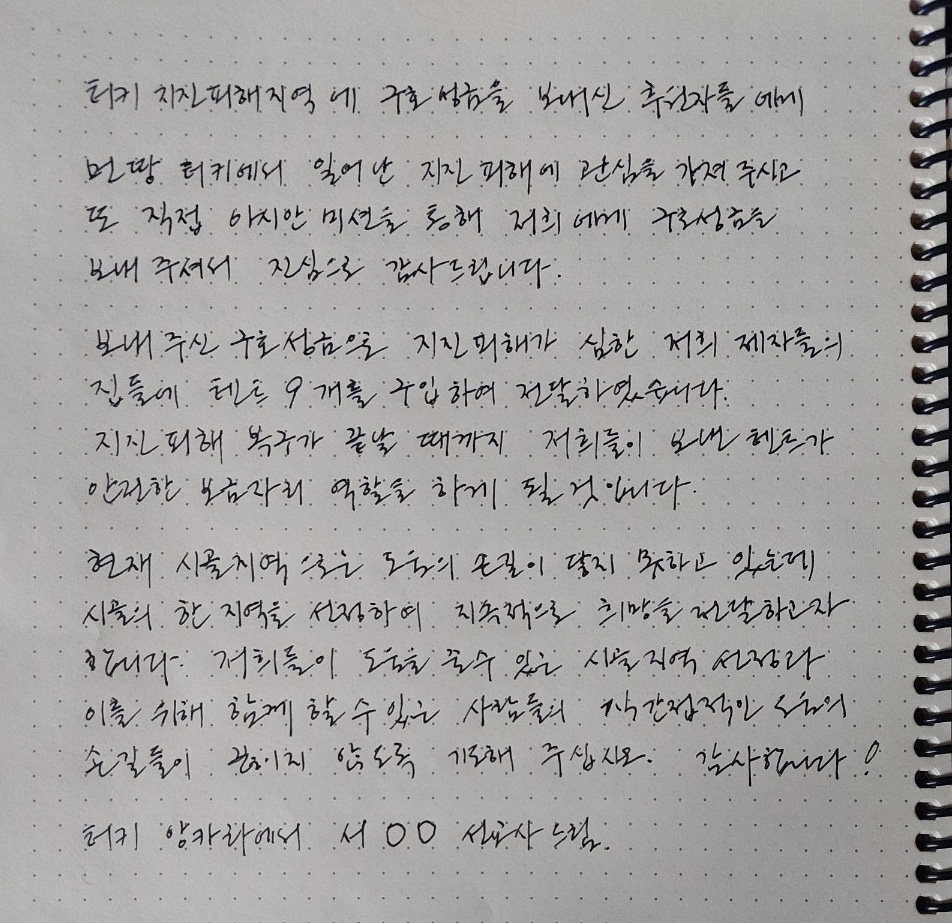 터키 지진피해지역에 구호성금을 보내신 후원자들에게
먼땅 터키에서 일어난 지진피해에 관심을 가져주시고
또 직접 아시안미션을 통해 저희에게 구호성금을
보내주셔서 진심으로 감사드립니다.
보내주신 구호성금으로 지진피해가 심한 저희 제자들의
집들에 텐트 9개를 구입하여 전달하였습니다.
지진피해 복구가 끝날 때까지 저희들이 보낸 텐트가
안전한 보금자리 역할을 하게 될 것입니다.
현재 시골지역으로는 도움의 손길이 닿지 못하고 있는데
시골의 한 지역을 선정하여 지속적으로 희망을 전달하고자
합니다. 저희들이 도움을 줄수 있는 시골지역 선정과
이를 위해 함께 할 수 있는 사람들의 직간접적인 도움의
손길들이 끊이지 않도록 기도해 주십시오. 감사합니다!
터키 앙카라에서 서OO 선교사 드림.